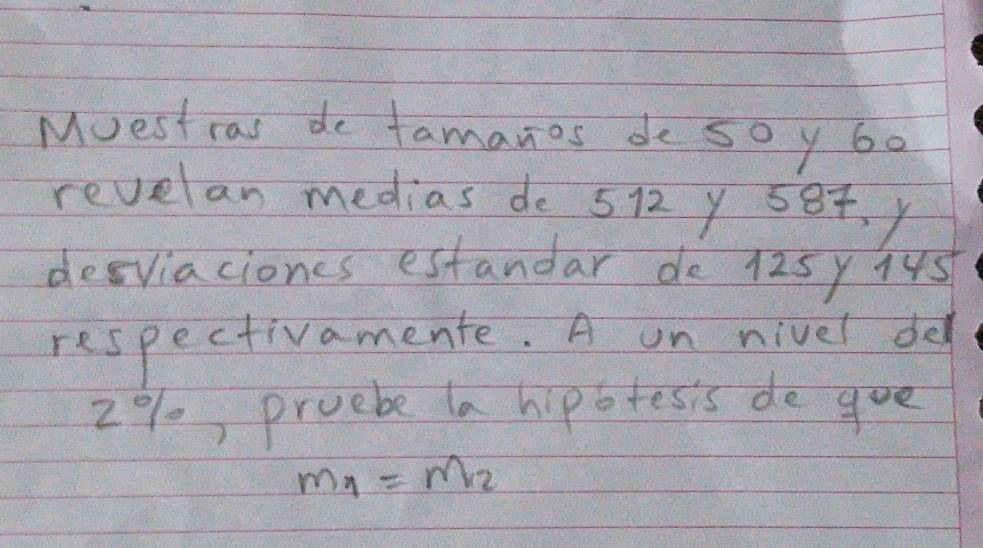 Muestras de tamaños de 50 y 60
revelan medias de 512 y 587, y
desviaciones estandar de 125 y 145
respectivamente. A un nivel del
2%, pruebe la hipótesis de que
m1 = m2